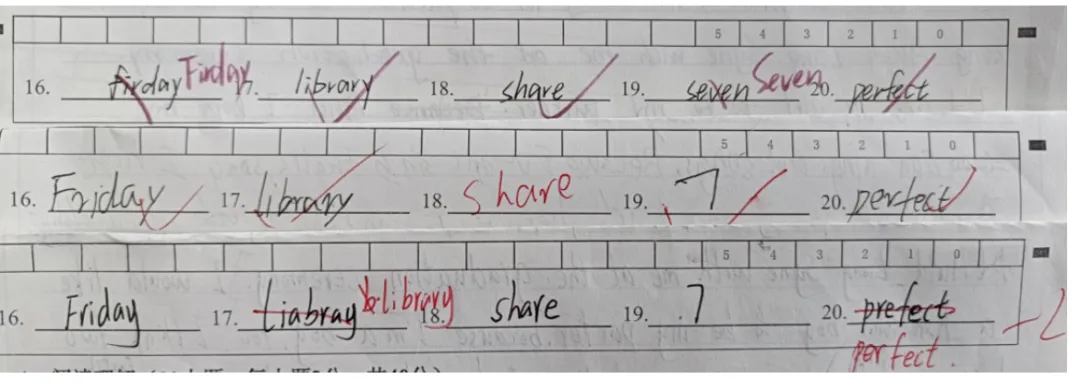 5 4 3 2 1 0
16. firday Firday 17. library 18. share 19. seven Seven 20. perfect
5 4 3 2 1 0
16. Friday 17. library 18. share 19. 7 20. perfect
5 4 3 2 1 0
16. Friday 17. Liabray library 18. share 19. 7 20. prefect -2
perfect.